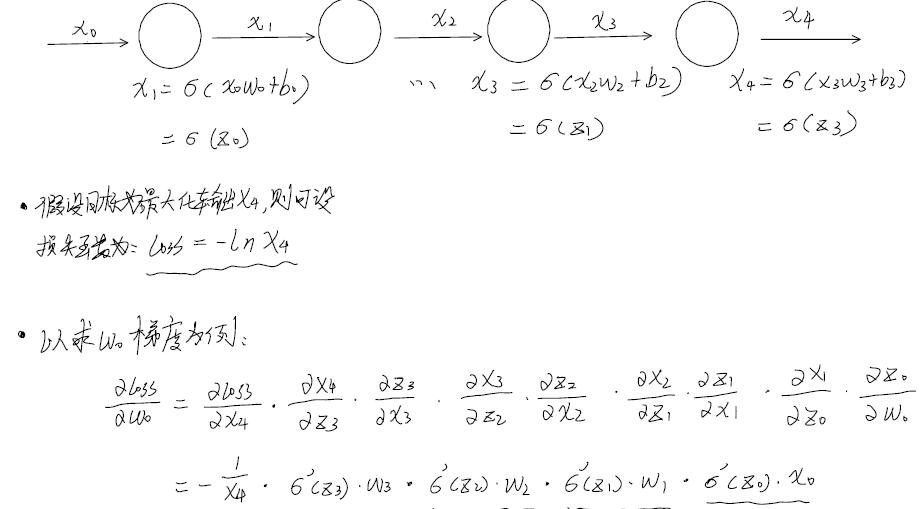 x₀ x₁ x₂ x₃ x₄
x₁ = σ(x₀w₀+b₀) ... x₃ = σ(x₂w₂+b₂) x₄ = σ(x₃w₃+b₃)
= σ(z₀) = σ(z₁) = σ(z₃)
• 假设目标为最大化输出x₄,则可设
损失函数为: loss = -ln x₄
• 以求w₀梯度为例:
∂loss/∂w₀ = ∂loss/∂x₄ · ∂x₄/∂z₃ · ∂z₃/∂x₃ · ∂x₃/∂z₂ · ∂z₂/∂x₂ · ∂x₂/∂z₁ · ∂z₁/∂x₁ · ∂x₁/∂z₀ · ∂z₀/∂w₀
= - 1/x₄ · σ′(z₃)·w₃ · σ′(z₂)·w₂ · σ′(z₁)·w₁ · σ′(z₀)·x₀